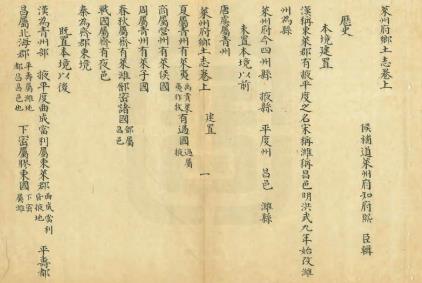 萊州府鄉土志卷上
候補道萊州府知府 臣輯
歷史
本境建置
漢稱東萊郡有掖平度之名宋稱濰稱昌邑明洪武九年始改濰
州為縣
萊州府今四州縣 掖縣 平度州 昌邑 濰縣
未置本境以前
唐虞屬青州
萊州府鄉土志卷上 建置 一
夏屬青州有萊夷 有過國
商屬營州有萊侯國
周屬青州有萊子國
春秋屬齊有萊濰郚密諸國
戰國屬齊有夜邑
秦為齊郡東境
既置本境以後
漢為青州部 掖平度曲成當利屬東萊郡 平壽都
昌屬北海郡 下密屬膠東國